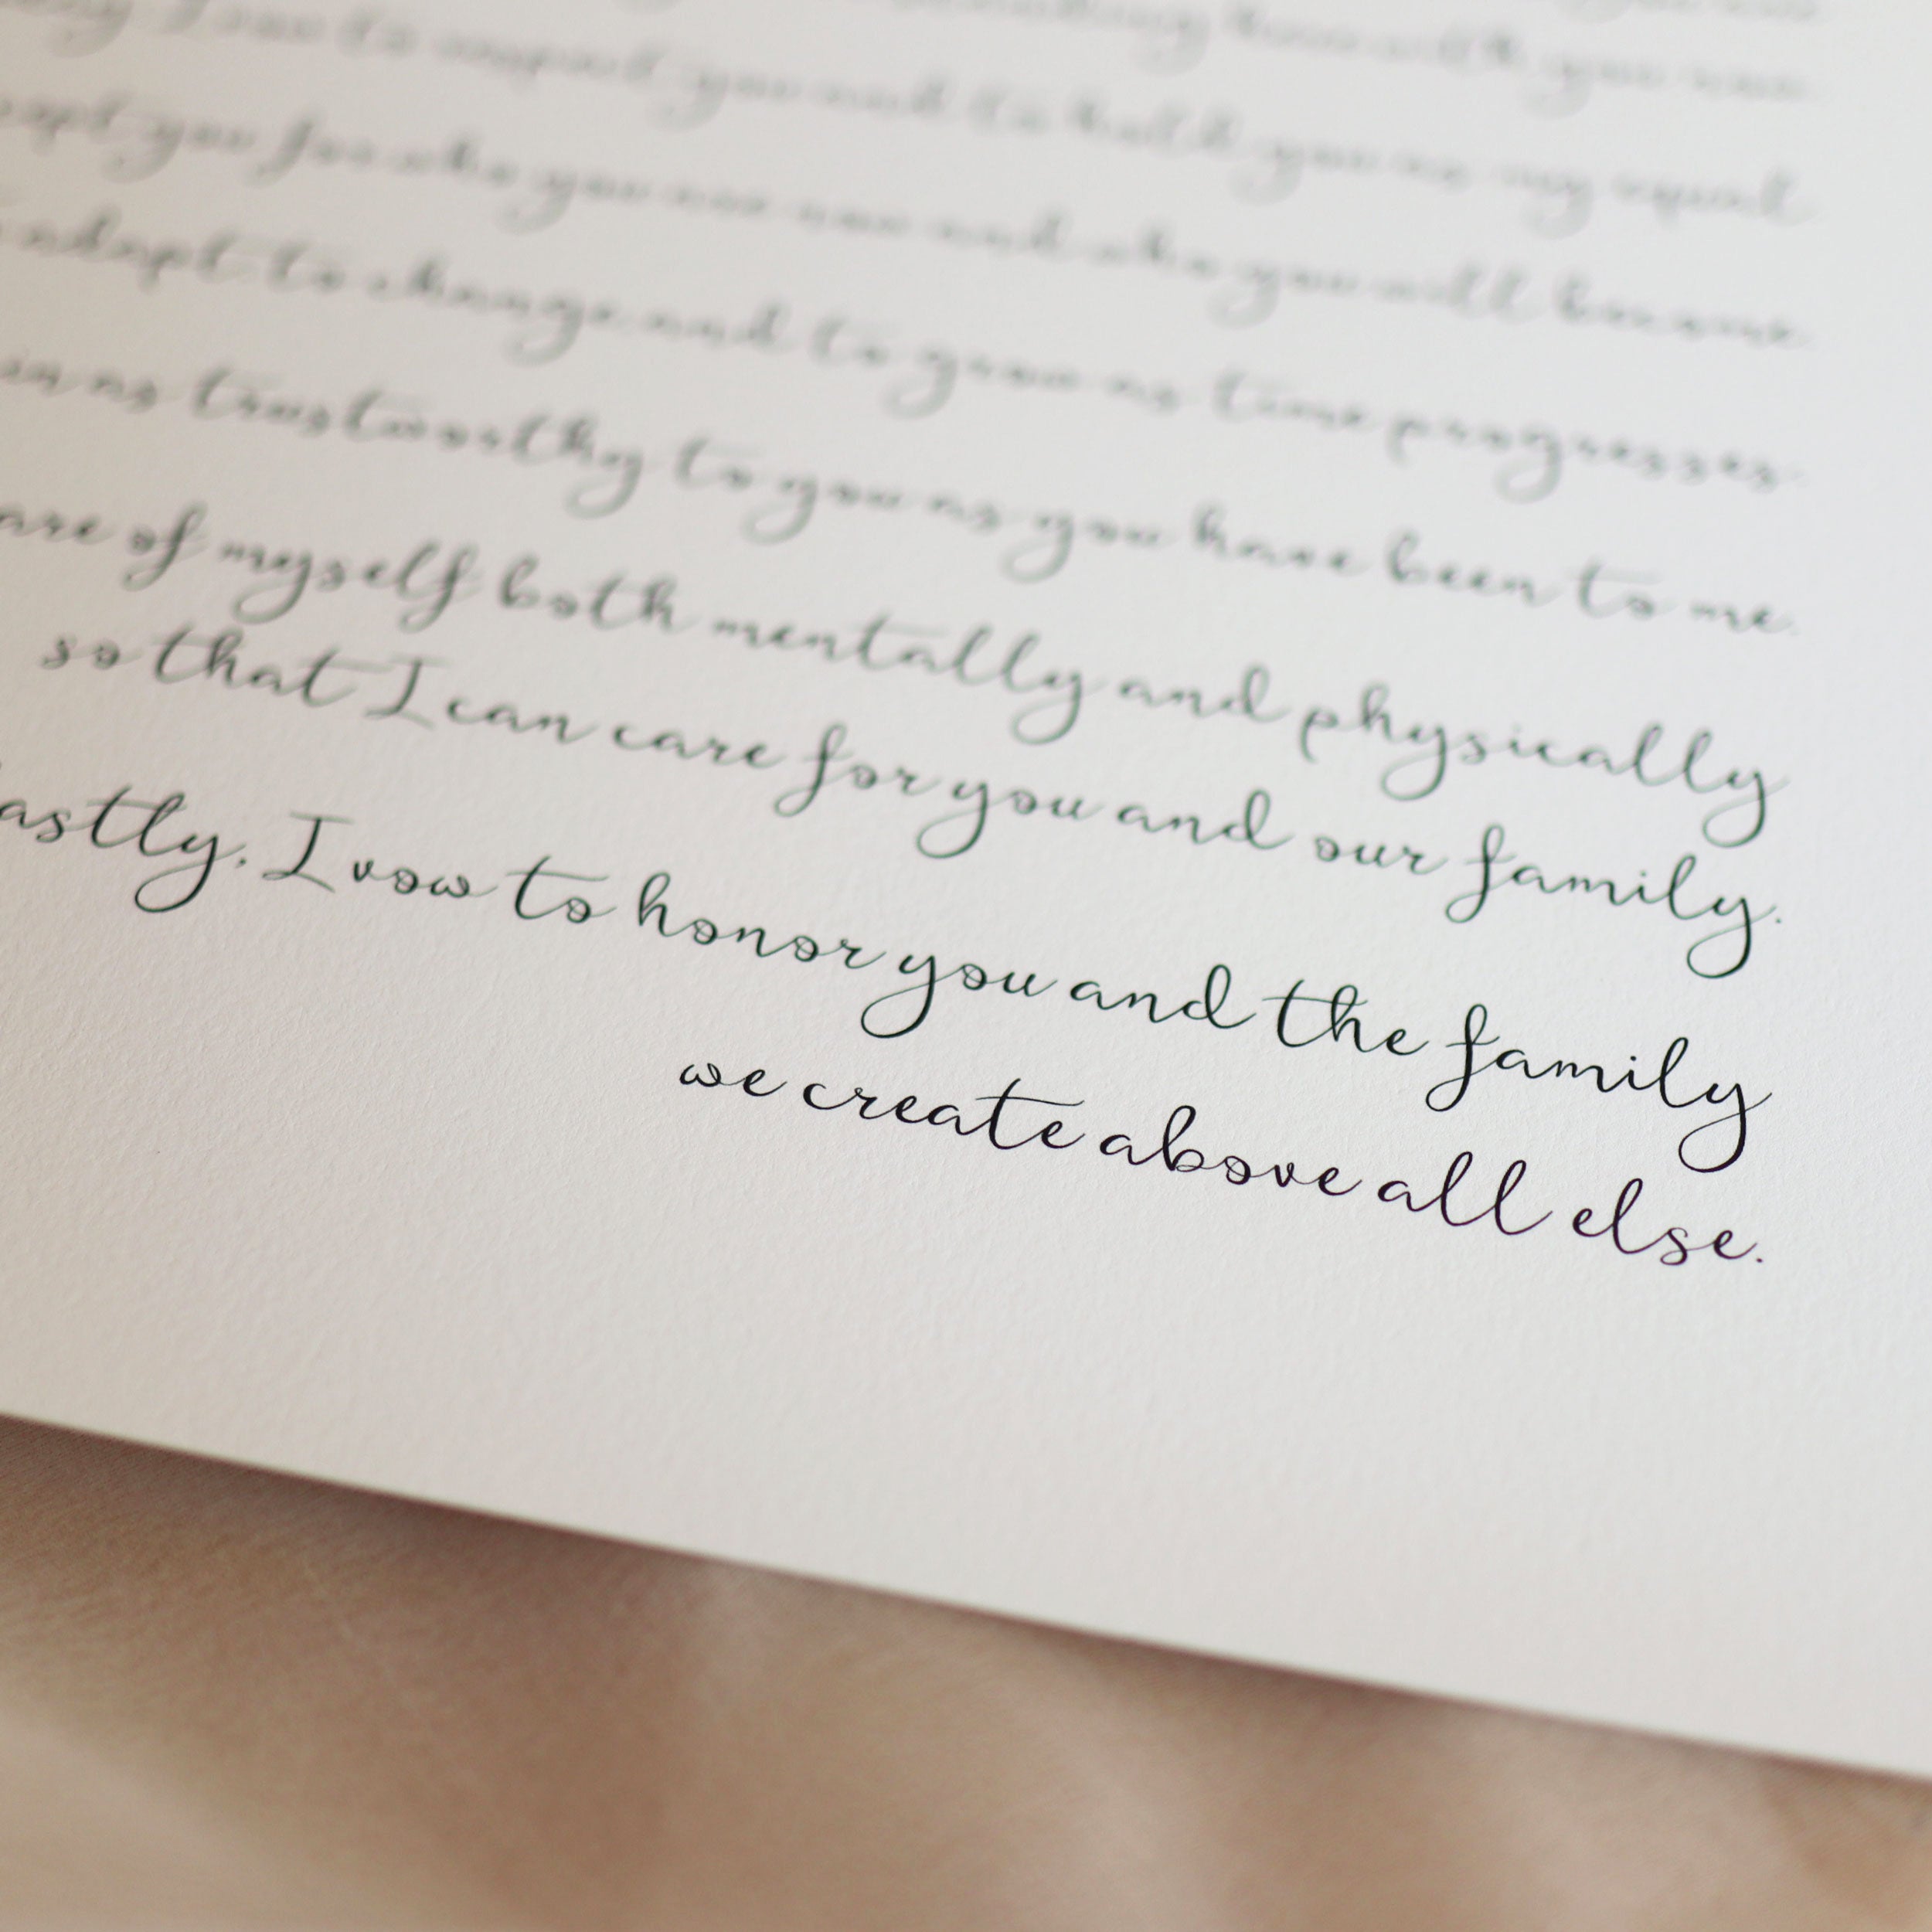 time with you
I vow to respect you and to hold you as my equal
you for who you are now and who you will become
adapt to change and to grow as time progresses.
in as trustworthy to you as you have been to me.
are of myself both mentally and physically
so that I can care for you and our family.
astly, I vow to honor you and the family
we create above all else.